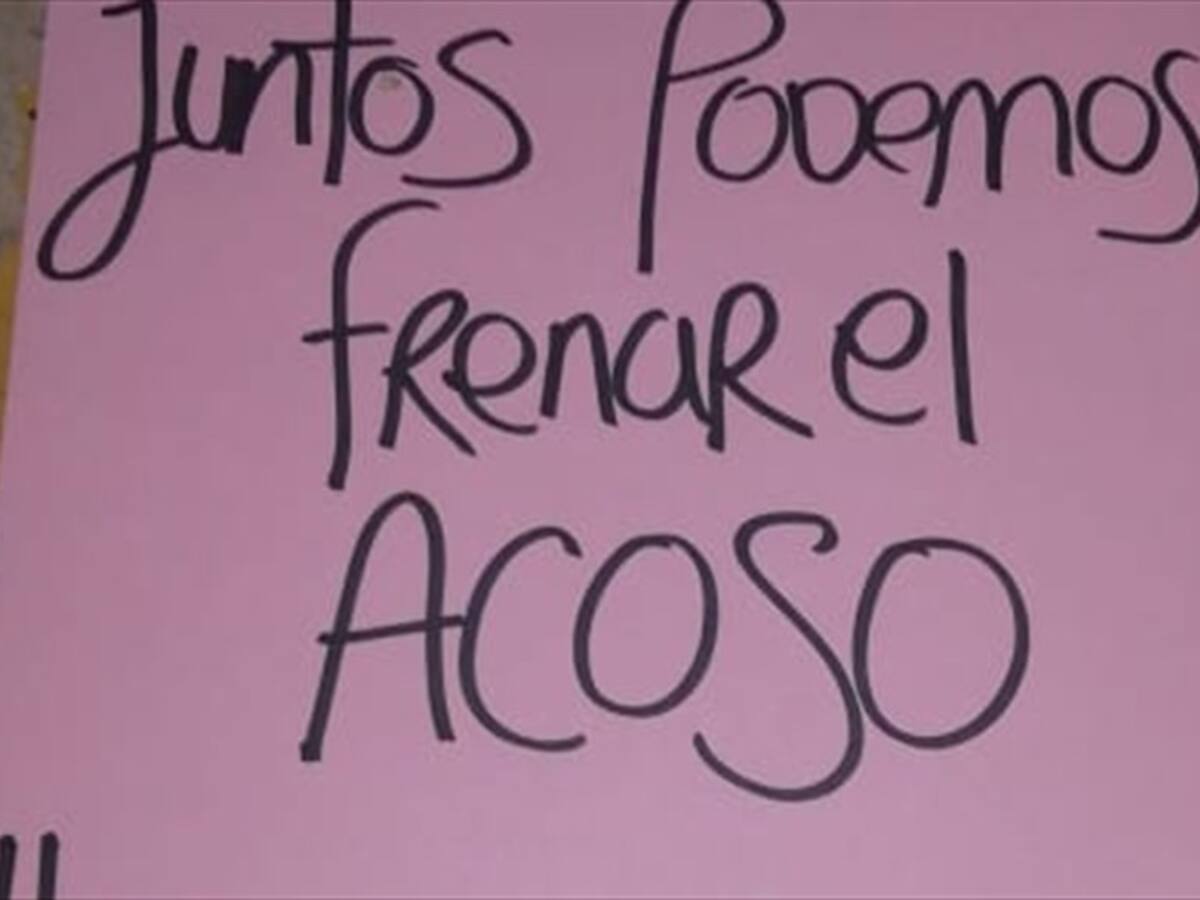 Juntos Podemos
frenar el
ACOSO